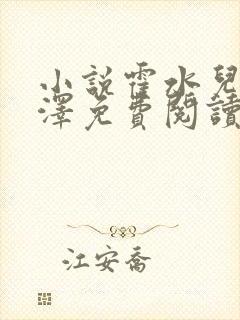 小說霍水兒
澤免費閱讀
江安喬